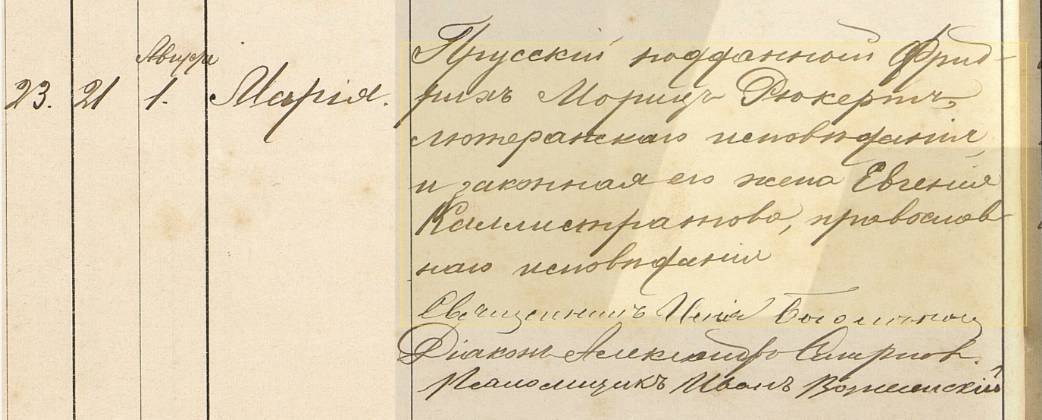 Августа
23. 21 1. Марія.
Прусскій подданной Фрид-
рихъ Морицъ Рюкертъ,
лютеранскаго исповѣданія,
и законная его жена Евгенія
Каллистратова, православ-
наго исповѣданія
Священникъ
Діаконъ Александръ Смирновъ.
Псаломщикъ Иванъ